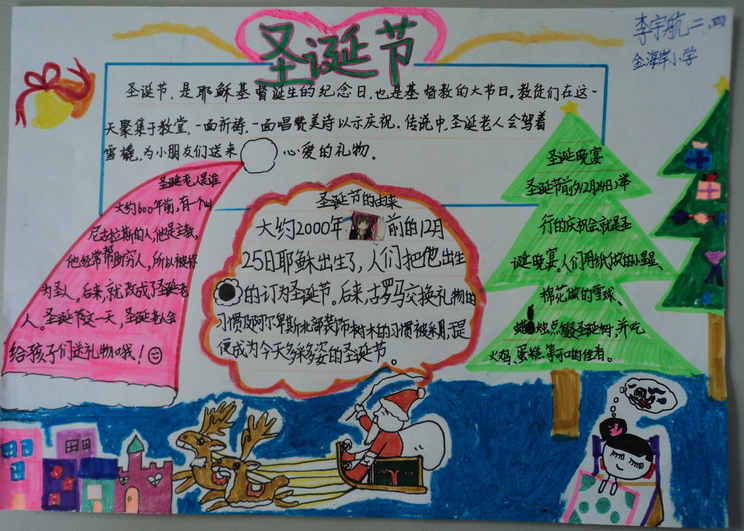 圣诞节
李宇航二、四
金海岸小学
圣诞节，是耶稣基督诞生的纪念日，也是基督教的大节日。教徒们在这一
天聚集于教堂，一面祈祷，一面唱赞美诗以示庆祝。传说中，圣诞老人会驾着
雪橇，为小朋友们送来心爱的礼物。
圣诞老人是谁
大约600年前，有一个叫
尼古拉斯的人，他是主教，
他经常帮助穷人，所以被称
为圣人。后来，就改成了圣诞老
人。圣诞节这一天，圣诞老人会
给孩子们送礼物哦！
圣诞节的由来
大约2000年前的12月
25日耶稣出生了，人们把他出生
的订为圣诞节。后来，古罗马交换礼物的
习惯及阿尔卑斯北部装饰树木的习惯被采用，提
便成为今天多彩多姿的圣诞节。
圣诞晚宴
圣诞节前夕12月24日举
行的庆祝会就是圣
诞晚宴。人们用纸做的小星星、
棉花做的雪球、
蜡烛点缀圣诞树，并吃
火鸡、蛋糕、等可口的佳肴。